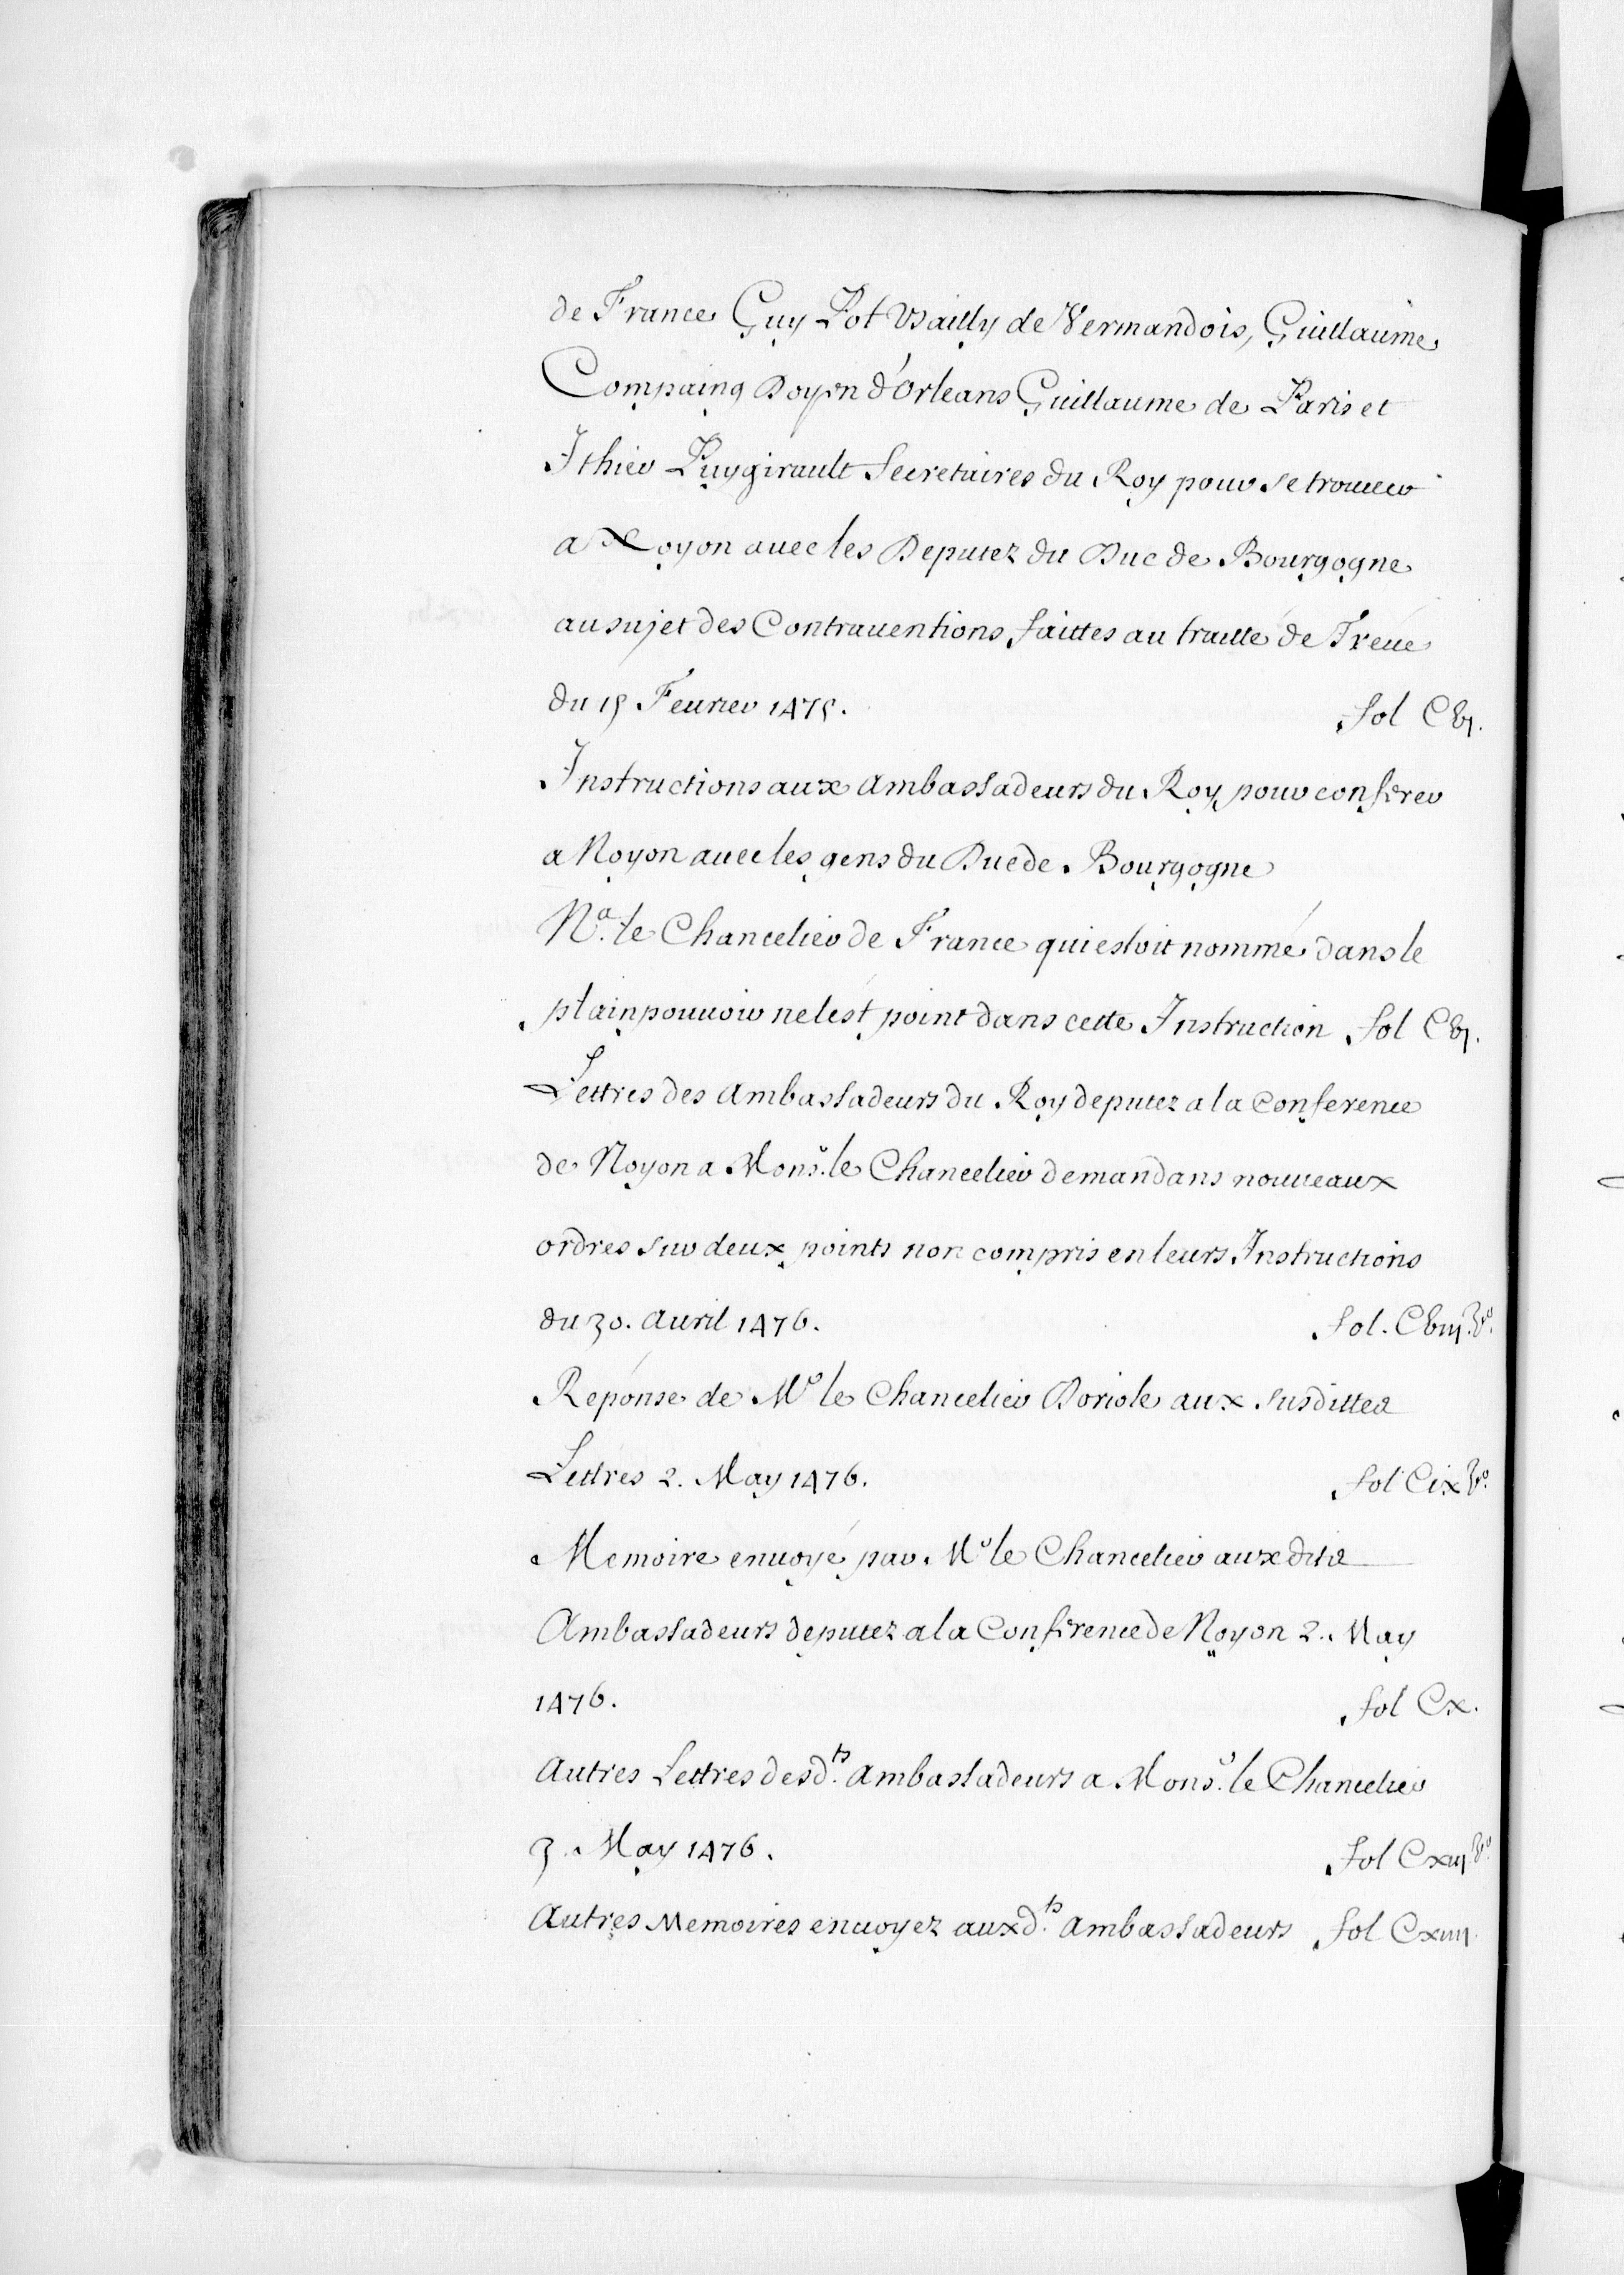 de France Guy Pot Bailly de Vermandois, Guillaume
Compaing Doyen d'Orleans Guillaume de Paris et
Ithier Puygirault Secretaires du Roy pour se trouuer
a Noyon auec les Deputez du Duc de Bourgogne
au sujet des Contrauentions faittes au traitté de Tréue
du 15 Feurier 1475. fol Cvj.
Instructions aux Ambassadeurs du Roy pour conferer
a Noyon auec les gens du Duc de Bourgogne
Na. le Chancelier de France qui estoit nommé dans le
plain pouuoir ne lest point dans cette Instruction fol Cvj.
Lettres des Ambassadeurs du Roy deputez a la Conference
de Noyon a Monsr. le Chancelier demandans nouueaux
ordres sur deux points non compris en leurs Instructions
du 30. Auril 1476. fol. Cviij. vo.
Réponse de Mr le Chancelier Doriole aux susdittes
Lettres 2. May 1476. fol Cix vo.
Memoire enuoyé par Mr le Chancelier aux dits
Ambassadeurs deputez a la Conference de Noyon 2. May
1476. fol Cx.
Autres Lettres desd.ts Ambassadeurs a Monsr. le Chancelier
3. May 1476. fol Cxiij vo.
Autres Memoires enuoyez auxd.ts Ambassadeurs fol Cxiiij.